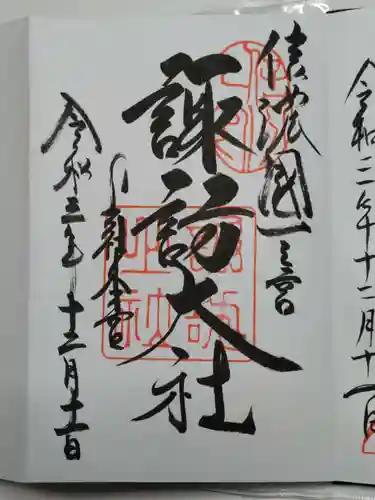 令和三年十二月十一日
信濃國一之宮
諏訪大社
諏訪大社
令和三年十二月十一日